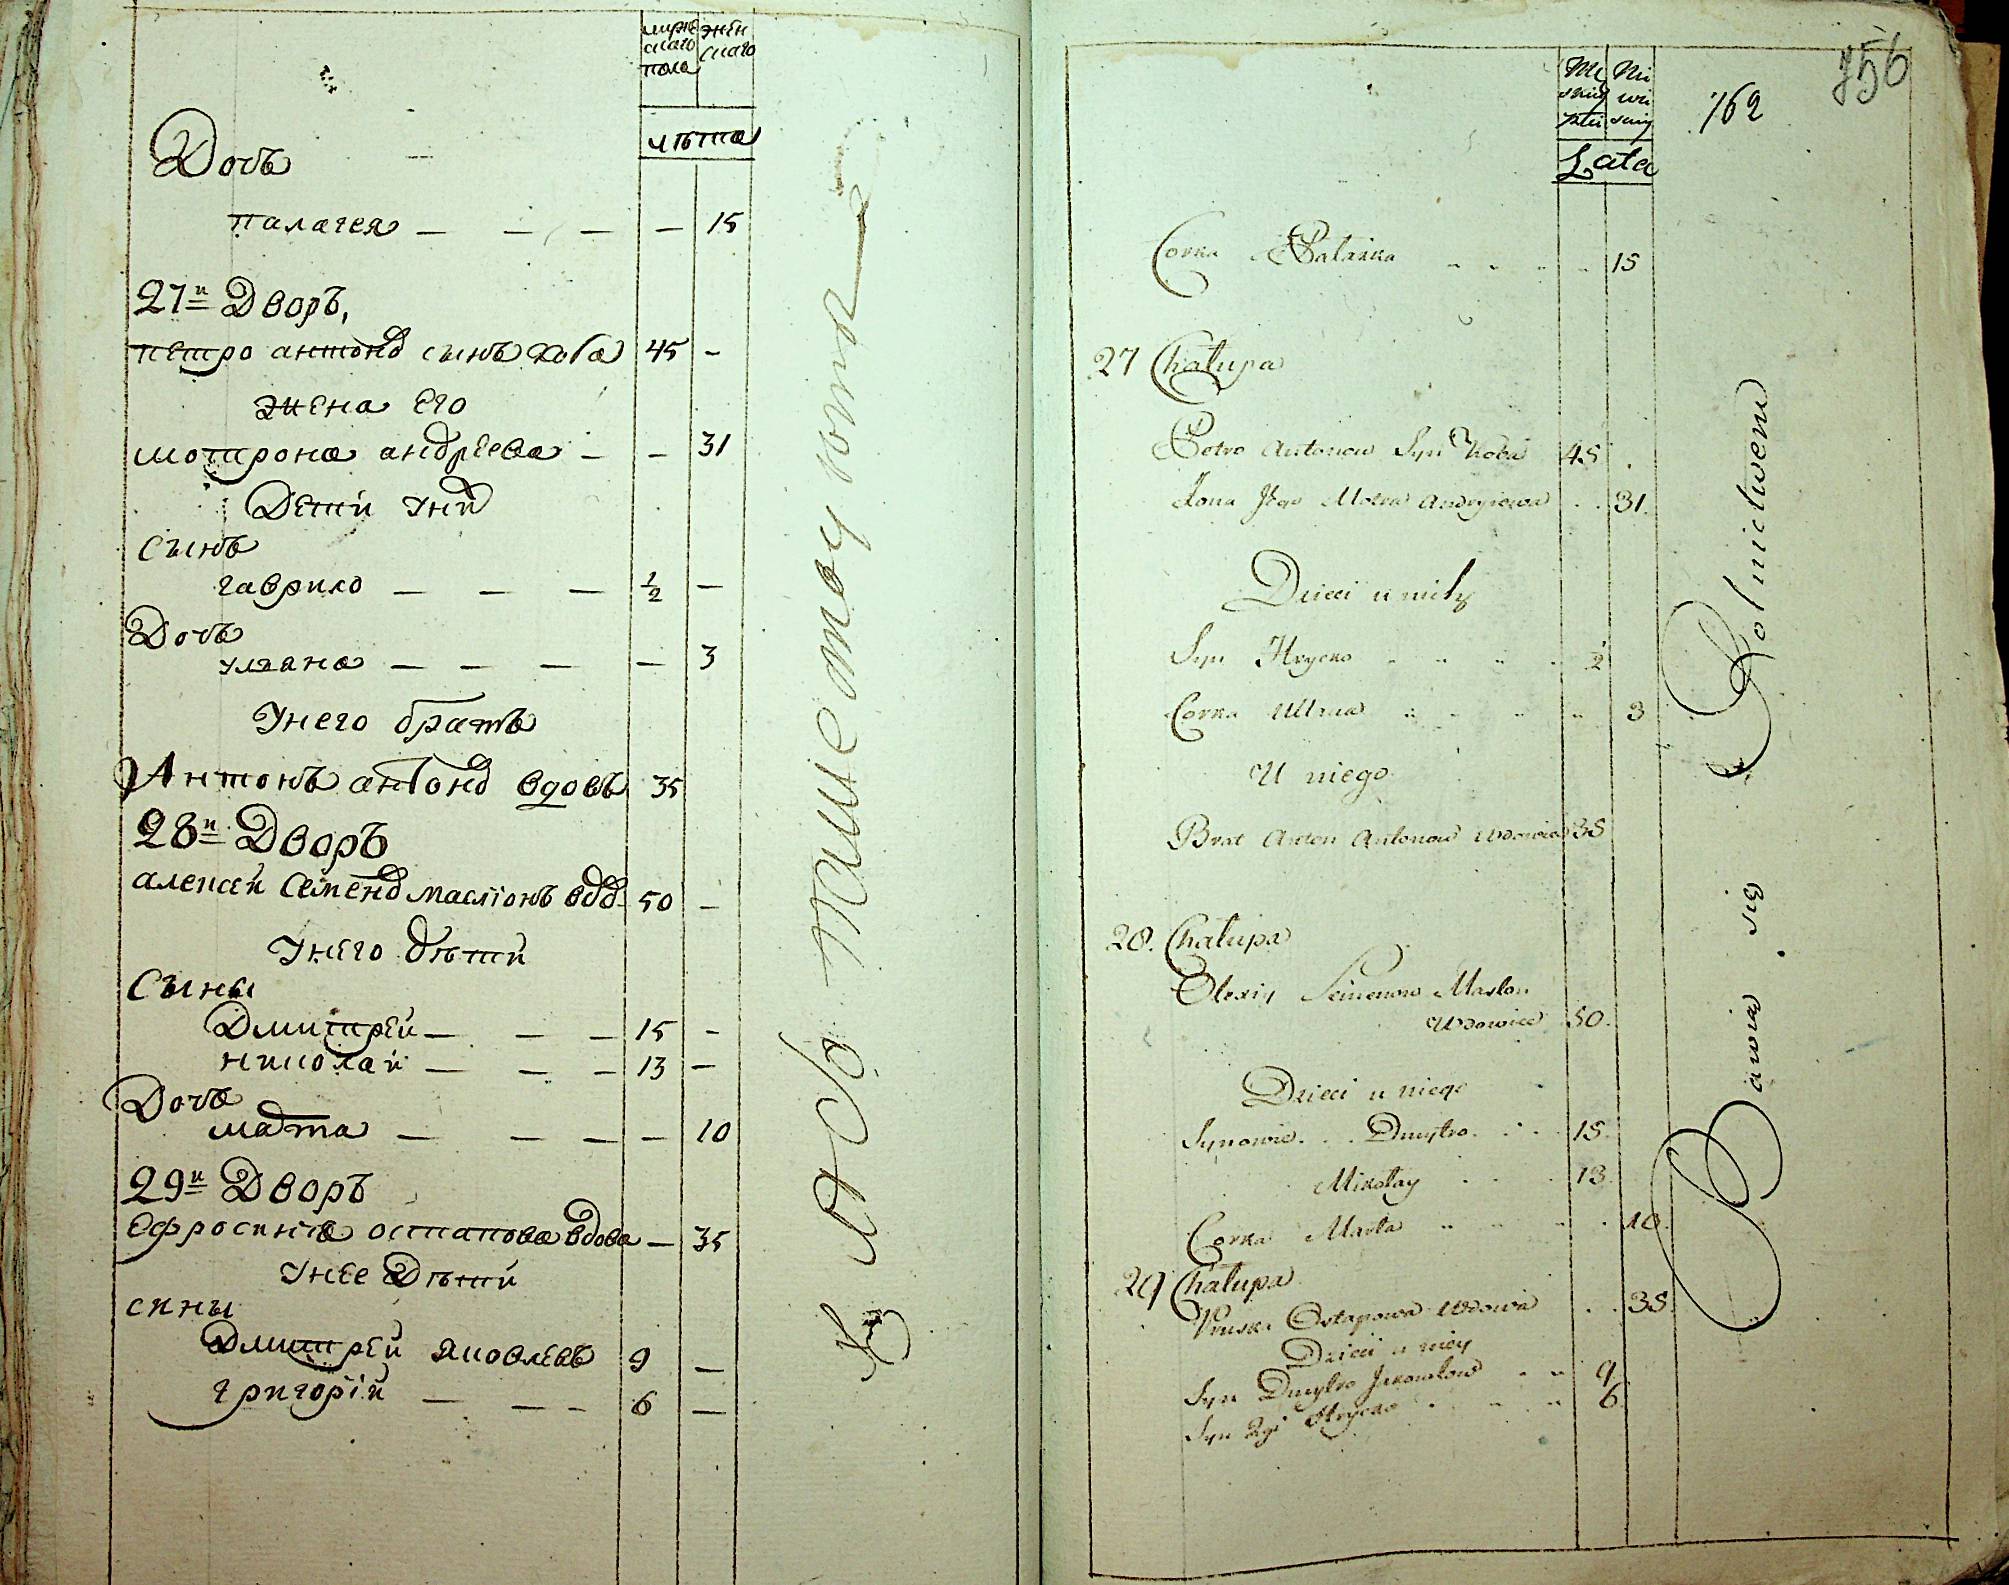 мужескаго пола
женскаго
лѣта
Дочь
палагея — — — — 15
27й Дворъ,
петро антоновъ сынъ коба 45 —
жена его
мотрона андреева — — 31
Дети у ний
Сынъ
гаврило — — — ½ —
Дочь
уляна — — — — 3
У него братъ
Антонъ антоновъ вдовъ 35
28й Дворъ
алексей Семеновъ маслюнъ вдов. 50 —
У него дѣтий
Сыны
Дмитрей — — — 15 —
николай — — — 13 —
Дочь
марта — — — — 10
29й Дворъ
Ефросиния остапова вдова — 35
У нее Дѣтий
сины
Дмитрей яковлевъ 9 —
григорий — — — 6 —
Хлебопашествуютъ
756
762
Lata
Corka Palaxka 15
27 Chalupa
Petro Antonow Syn Koba 45
Zona Jego Motra Andryiewa 31
Dzieci u nich
Syn Hrycko ½
Corka Ullana 3
U niego
Brat Anton Antonow Wdowiec 35
28. Chalupa
Olexiy Semenow Maslon
Wdowiec 50
Dzieci u niego
Synowie Dmytro 15
Mikolay 13
Corka Marta 10
29 Chalupa
Ostapowa Wdowa 35
Dzieci u niey
Syn Dmytro Jakowlow 9
Syn 2gi Hrycko 6
Bawia się Rolnictwem